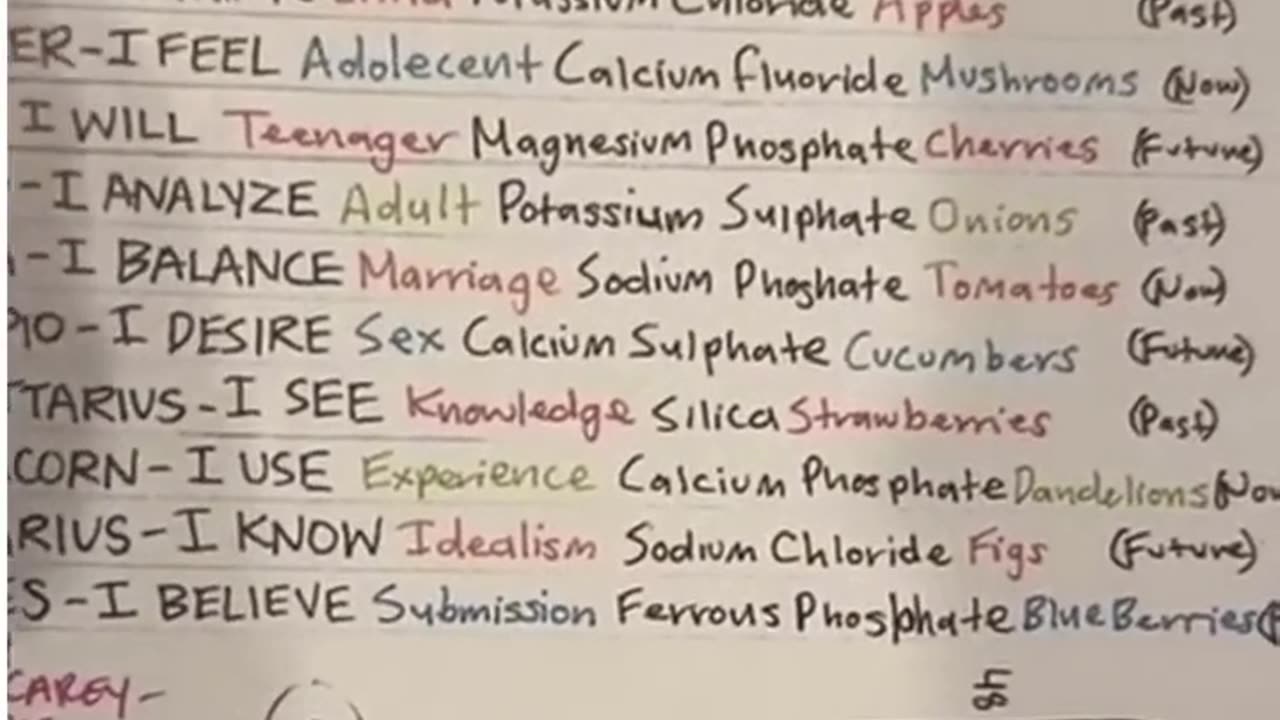 Potassium Chloride Apples (Past)
ER-I FEEL Adolecent Calcium fluoride Mushrooms (Now)
I WILL Teenager Magnesium Phosphate Cherries (Future)
-I ANALYZE Adult Potassium Sulphate Onions (Past)
-I BALANCE Marriage Sodium Phoshate Tomatoes (Now)
PIO-I DESIRE Sex Calcium Sulphate Cucumbers (Future)
TTARIUS-I SEE Knowledge Silica Strawberries (Past)
CORN-I USE Experience Calcium Phosphate Dandelions (Now
RIUS-I KNOW Idealism Sodium Chloride Figs (Future)
ES-I BELIEVE Submission Ferrous Phosphate BlueBerries (
CAREY-